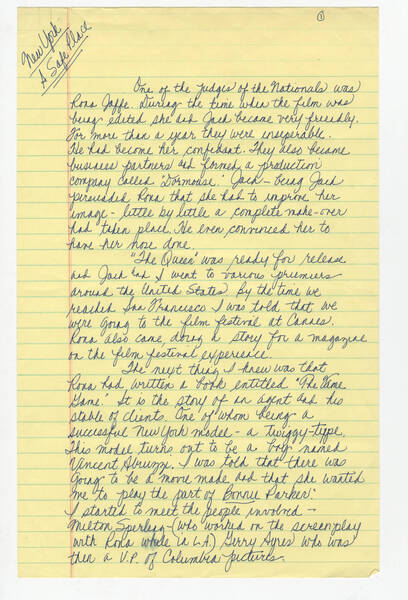 ①
New York
A Safe Place
One of the judges of the Nationals was
Rona Jaffe. During the time when the film was
being edited she and Jack became very friendly.
For more than a year they were inseperable.
He had become her confidant. They also became
business partners and formed a production
company called "Dormouse." Jack - being Jack
persuaded Rona that she had to improve her
image - little by little a complete make-over
had taken place. He even convinced her to
have her nose done.
"The Queen" was ready for release
and Jack and I went to various premiers
around the United States. By the time we
reached San Francisco I was told that we
were going to the film festival at Cannes.
Rona also came, doing a story for a magazine
on the film festival experience.
The next thing I knew was that
Rona had written a book entitled "The Fame
Game." It is the story of an agent and his
stable of clients. One of whom being a
successful New York model - a twiggy-type.
This model turns out to be a boy named
Vincent Abruzzi. I was told that there was
going to be a movie made and that she wanted
me to play the part of Bonnie Parker.
I started to meet the people involved -
Milton Sperling - (who worked on the screenplay
with Rona while in L.A.) Gerry Ayres who was
then a V.P. of Columbia pictures.